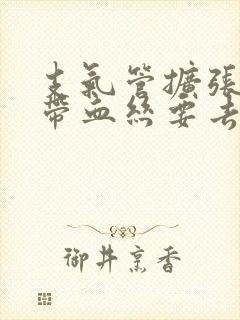 支氣管擴張
帶血絲要去
御井烹香